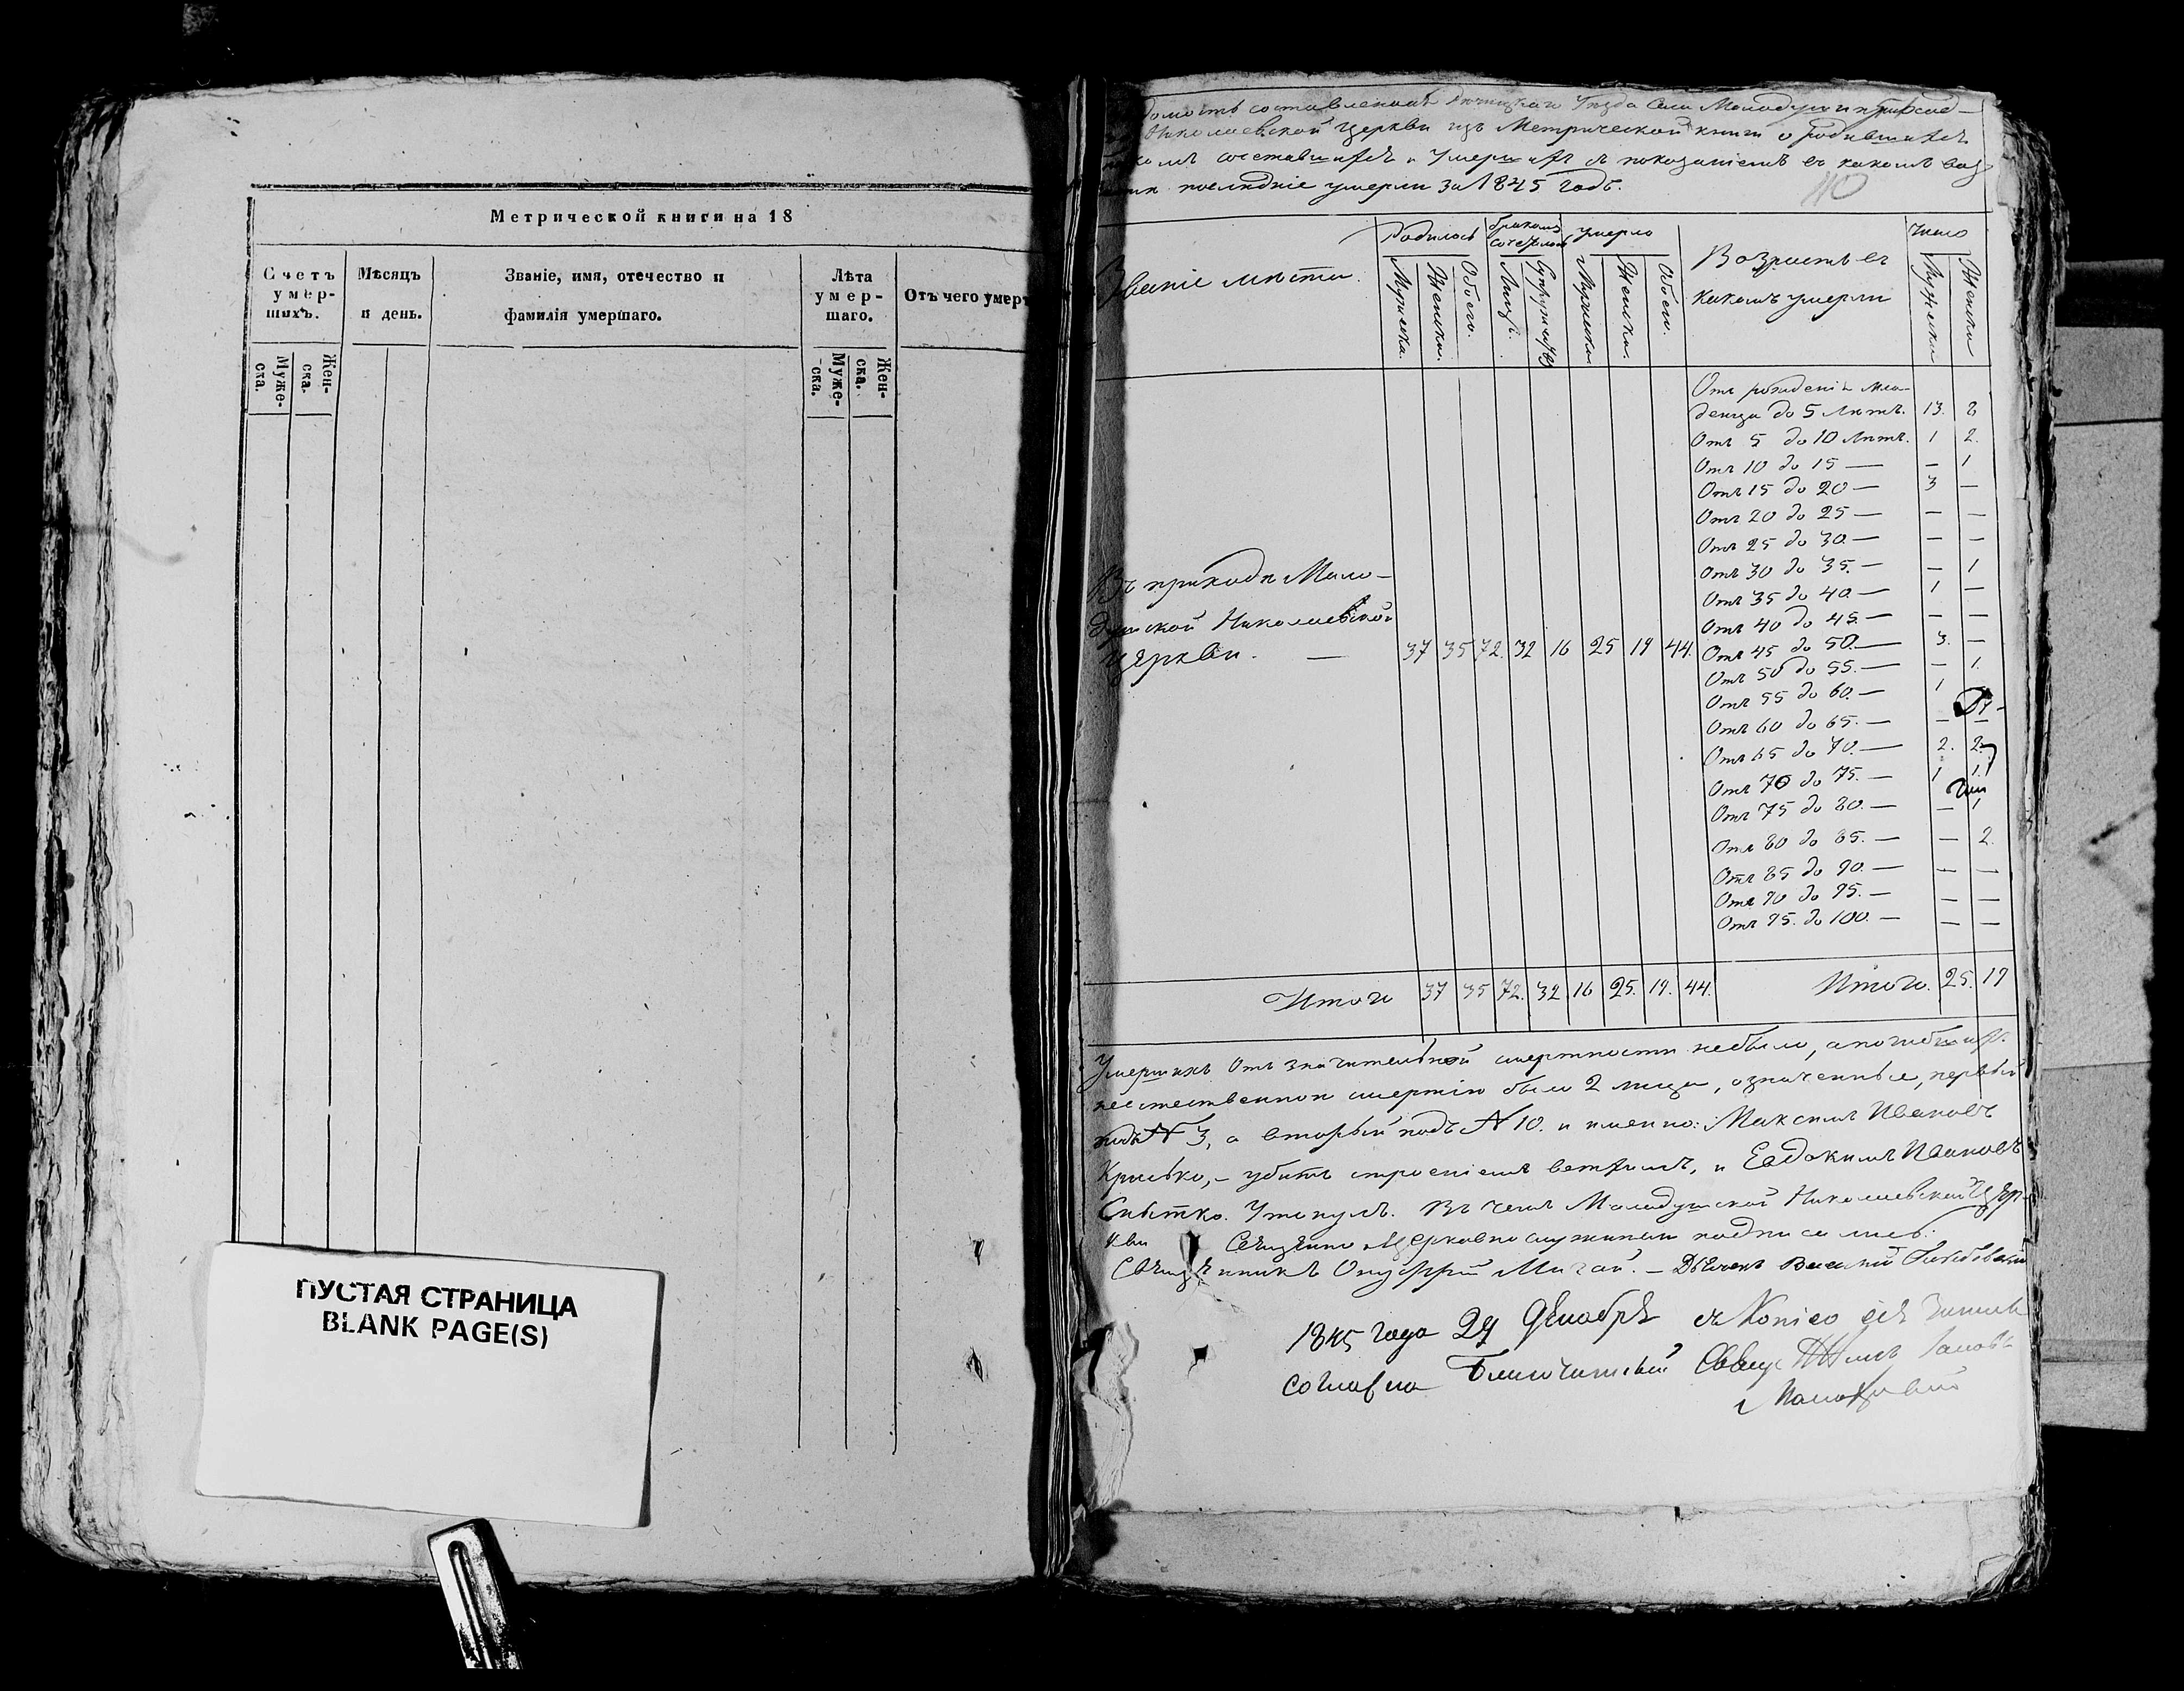 Метрической книги на 18
Счетъ умер-шихъ.
Мѣсяцъ и день.
Званіе, имя, отечество и фамилія умершаго.
Лѣта умер-шаго.
Отъ чего умер
Муже-ска.
Жен-ска.
Муже-ска.
Жен-ска.
ПУСТАЯ СТРАНИЦА
BLANK PAGE(S)
составленная Уѣзда Села Молодуши приход-
Николаевской церкви изъ Метрической книги о родившихся
умершихъ съ показаніемъ въ какомъ воз-
послѣдніе умерли за 1845 годъ.
110
Званіе мѣста.
Родилось
бракомъ сочеталось
умерло
Возрастъ въ какомъ умерли
Число
Мужеска.
Женска.
Обоего.
Лицъ.
Супружествъ
Мужеска.
Женска.
Обоего.
Мужеска
Женска
Отъ рожденія мла-
денца до 5 лѣтъ. 13. 8
Отъ 5 до 10 лѣтъ. 1 2.
Отъ 10 до 15 — — 1
Отъ 15 до 20 — 3 —
Отъ 20 до 25 — — —
Отъ 25 до 30 — — —
Отъ 30 до 35. — — 1
Отъ 35 до 40. — 1 —
Отъ 40 до 45. — — —
Отъ 45 до 50. — 3. —
Отъ 50 до 55. — — 1.
Отъ 55 до 60. — 1
Отъ 60 до 65. — — —
Отъ 65 до 70. — 2. 2.
Отъ 70 до 75. — 1 1.
Отъ 75 до 80. — — 1
Отъ 80 до 85. — — 2.
Отъ 85 до 90. — — —
Отъ 90 до 95. — — —
Отъ 95. до 100. — — —
Въ приходѣ Моло-
душской Николаевской
церкви. — 37 35 72. 32 16 25 19 44.
Итого 37 35 72. 32 16 25. 19. 44. Итого. 25. 19
Умершихъ отъ значительной смертности небыло, а погибшихъ
неестественной смертію было 2 лица, означенные, первый
подъ N 3, а вторый подъ N 10. и именно: Максимъ Ивановъ
убитъ строеніемъ вѣтромъ, и Евдокимъ Ивановъ
Снытко. Утонулъ. Въ чемъ Молодушской Николаевской Цер-
кви Священно Церковно служители подписались:
Священникъ Онуфрій Мигай. — Дьячекъ Василій
1845 года 29 Декабря съ Копіею
согласна Благочинный